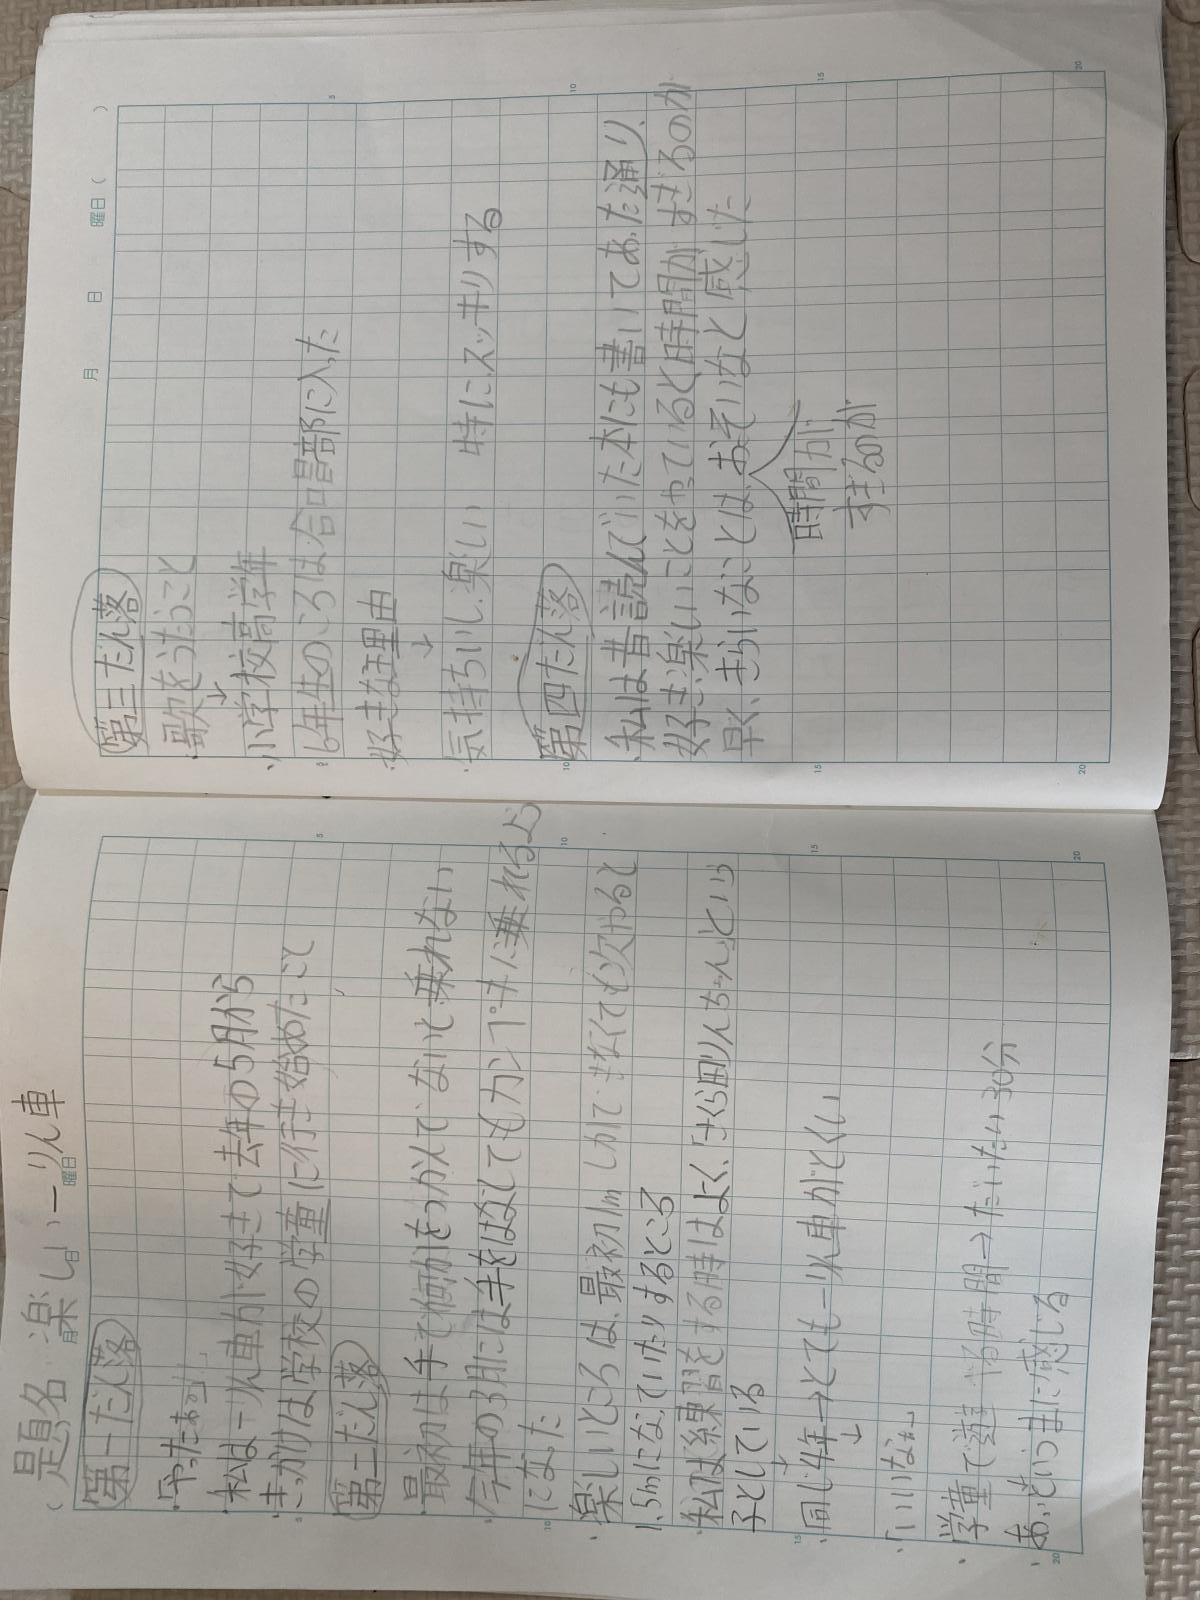 （題名 楽しい一りん車
月 日 曜日
第一だん落
・「やったあ。」
・私は一りん車が好きで去年の5月から
・きっかけは学校の学童に行き始めたこと
第二だん落
・最初は手で何かをつかんでないと乗れない
・今年の3月には手をはなしてもカンペキに乗れるよう
になった
・楽しいところは、最初1mしかできなくても次やると
1、5mになっていたりするところ
・私は練習をする時はよく、「さくら田りんちゃん」という
子としている
↓
・同じ4年→とても一りん車がとくい
↓
・「いいなあ」
・学童で遊ぶやる時間→だいたい30分
・あっというまに感じる
5
10
15
20
月 日 曜日（ ）
第三だん落
・歌をうたうこと
↓
・小学校高学年
6年生のころは合唱部に入った
・好きな理由
↓
・気持ちいい、楽しい 特にスッキリする
第四だん落
・私は昔読んでいた本にも書いてあった通り、
好き、楽しいことをやっていると時間がすぎるのが
早く、きらいなことは、おそいなと感じた
時間が
すぎるのが
5
10
15
20